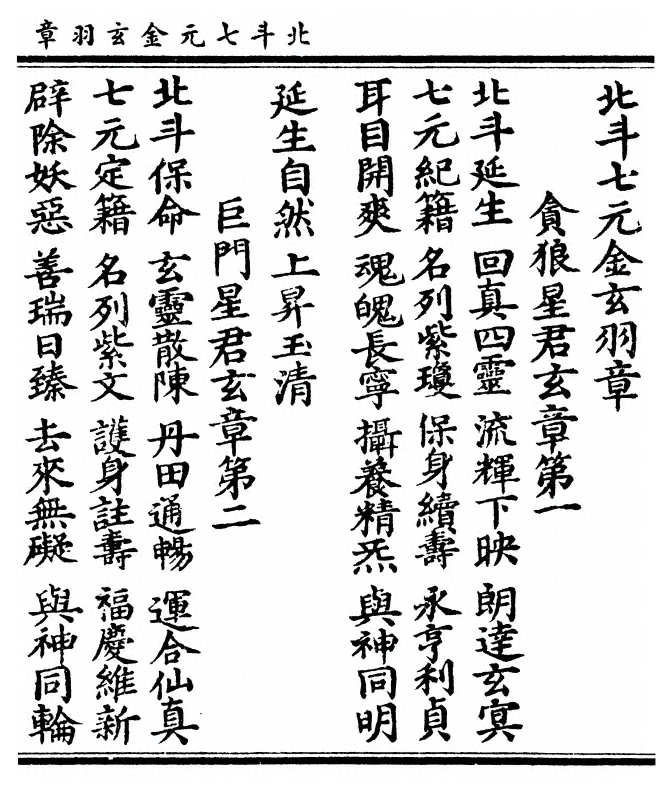 北斗七元金玄羽章
北斗七元金玄羽章
貪狼星君玄章第一
北斗延生 回真四靈 流輝下映 朗達玄冥
七元紀籍 名列紫瓊 保身續壽 永亨利貞
耳目開爽 魂魄長寧 攝養精炁 與神同明
延生自然 上昇玉清
巨門星君玄章第二
北斗保命 玄靈散陳 丹田通暢 運合仙真
七元定籍 名列紫文 護身註壽 福慶維新
辟除妖惡 善瑞日臻 去來無礙 與神同輪